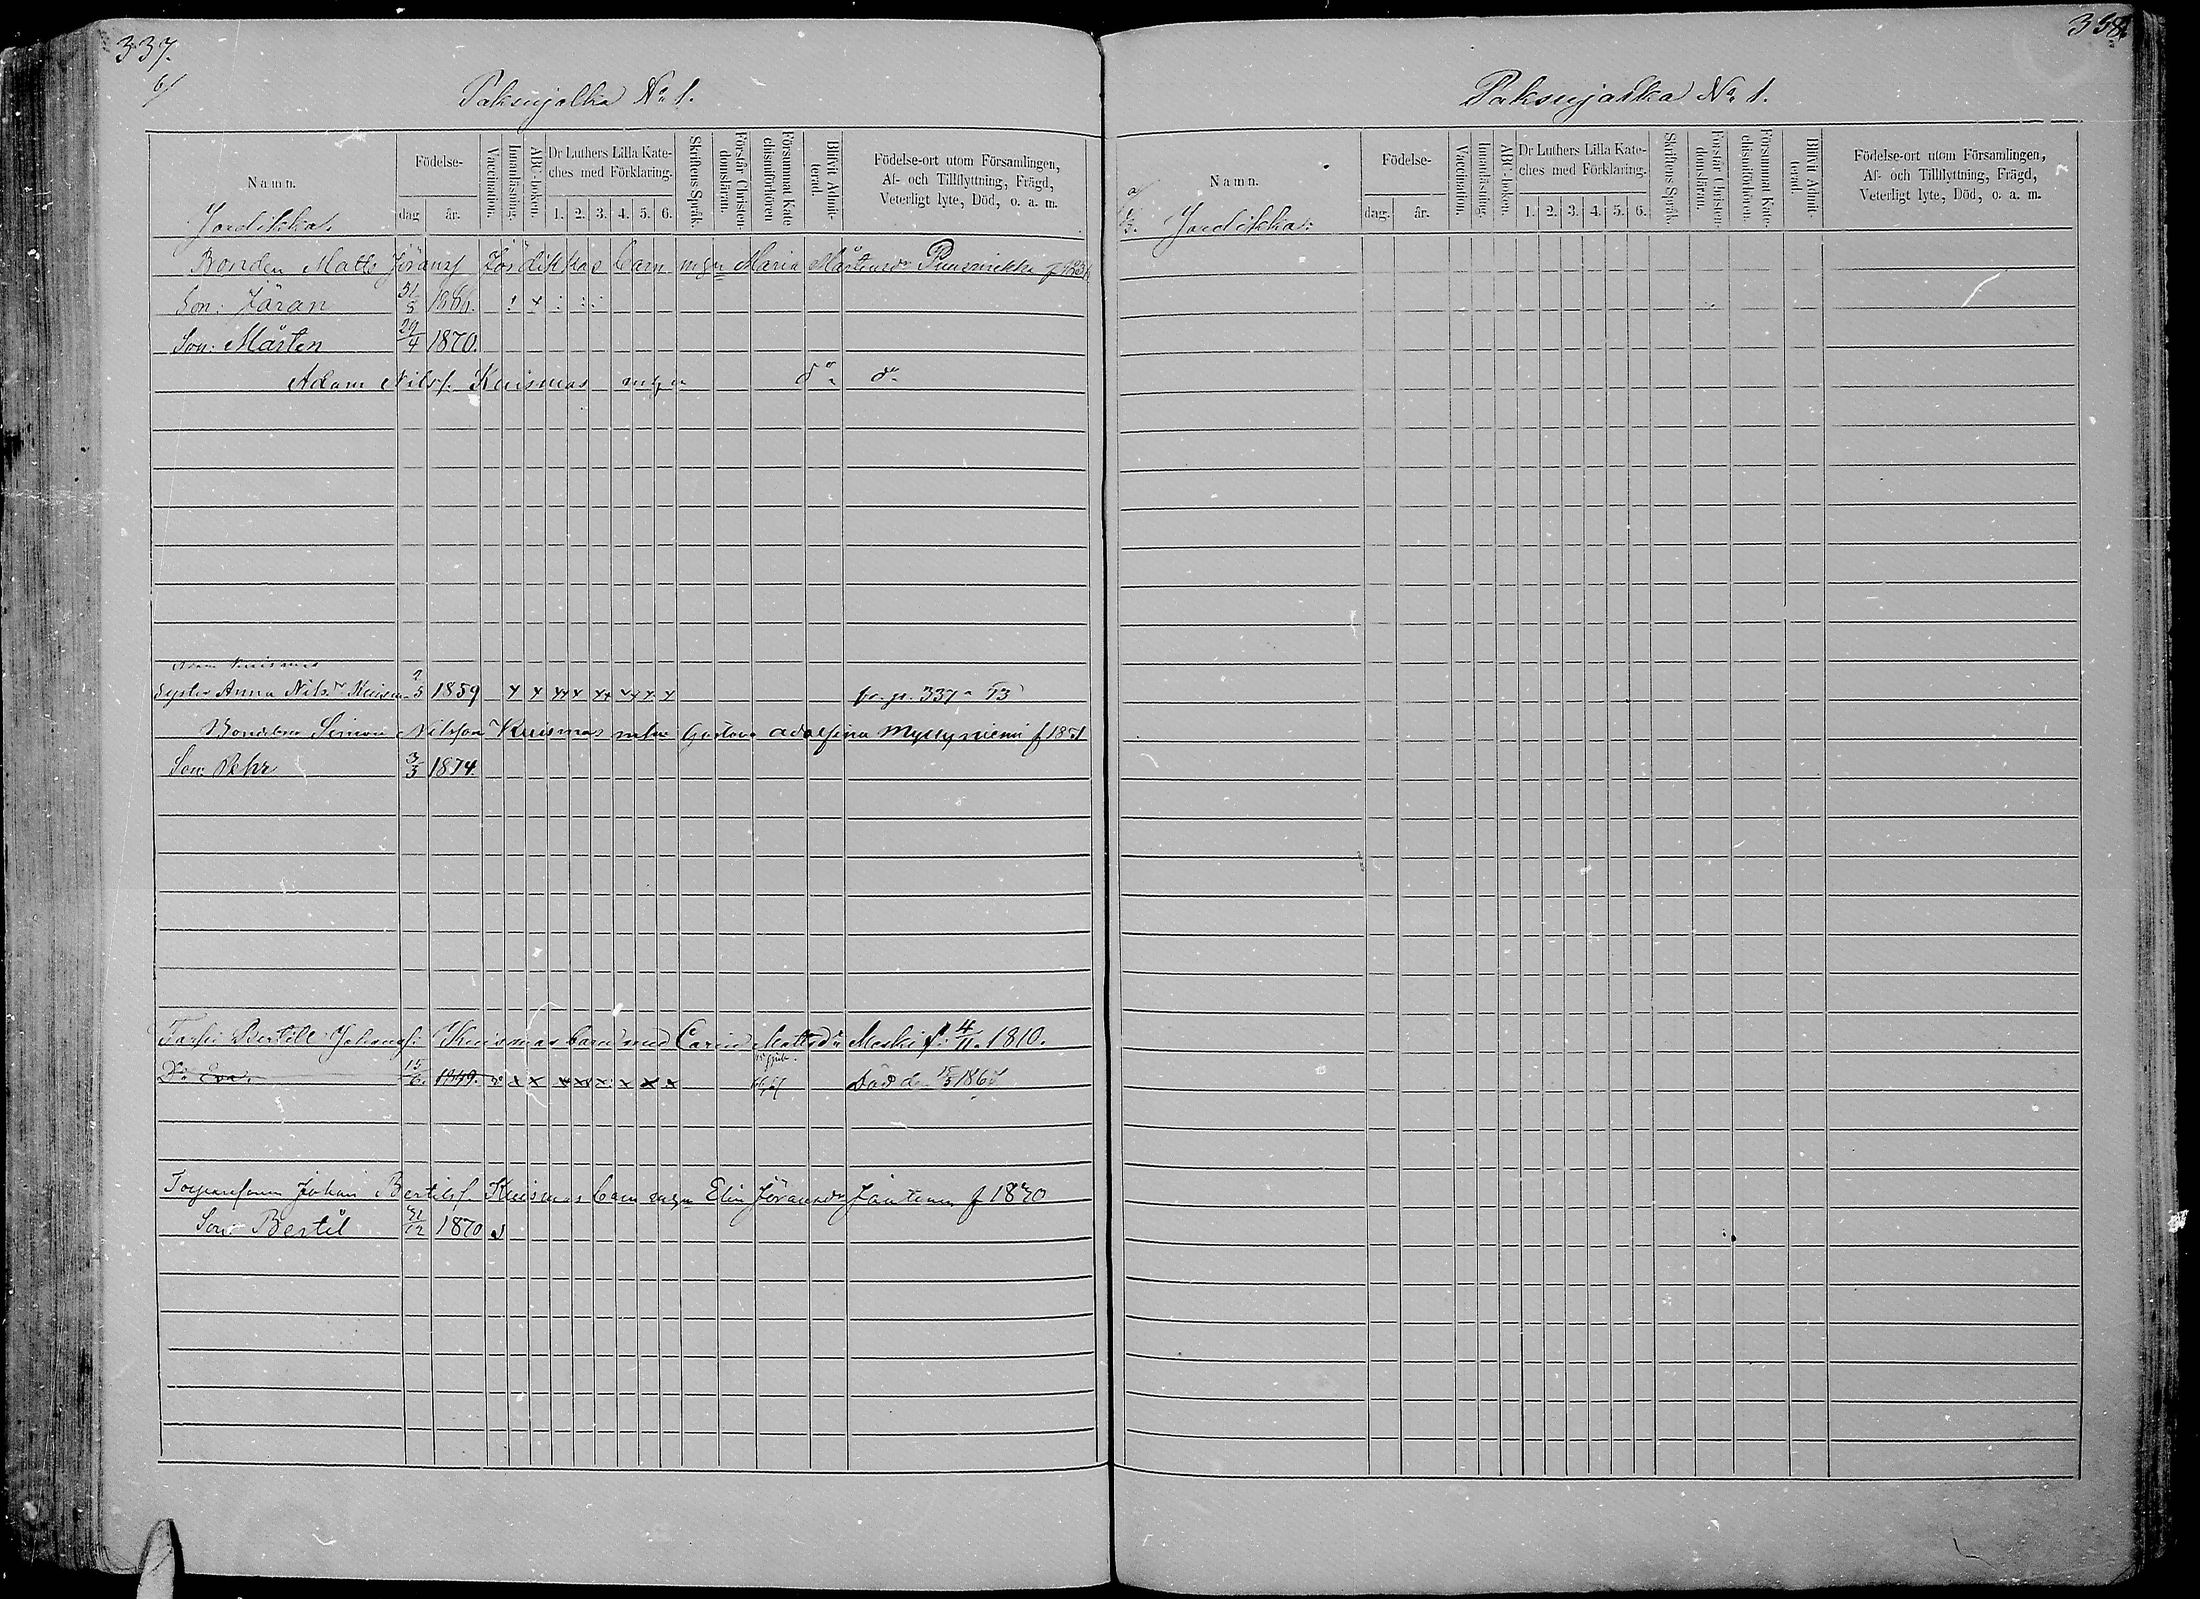 337.
6/
Paksujalka No 1.
Namn.
Födelse-
dag
år.
Vaccination.
Innanläsning.
ABC-boken.
Dr Luthers Lilla Kate-
ches med Förklaring.
1. 2. 3. 4. 5. 6.
Skriftens Språk.
Förstår Christen-
domsläran.
Försummat Kate-
chismiförhören
Blifvit Admit-
terad.
Födelse-ort utom Församlingen,
Af- och Tillflyttning, Frägd,
Veterligt lyte, Död, o. a. m.
Jordikka:
Bonden Matts Jöransf Jordikkas barn mgn Maria Mårtensdr
Son: Jöran 31/3 1866.
Son: Mårten 29/4 1870.
Adam Nilsf. Kuismas mgn do do
Adam Kuismas
Syster Anna Nilsdr Kuisma 2/5 1859 x x xx x xx xx x x fr. p. 337 a 73
Bondeson Simon Nilsson Kuismas mhu Gustava Adolfina Myllyniemi f 1851
Son: Pehr 3/3 1874.
Torpn Bertill Johansf: Kuismas barn med Carin Mattsdr Meski f: 4/11. 1810.
Do Eva. 15/6. 1849. v x x x x x x x x Död den 15/5 1868
Torparesonen Johan Bertilsf Kuismas barn mgn Elin Jöransdr Jäntinen f 1840
Son Bertil 31/12 1870 s
338.
Paksujalka No 1.
Namn.
Födelse-
dag.
år.
Vaccination.
Innanläsning.
ABC-boken.
Dr Luthers Lilla Kate-
ches med Förklaring.
1. 2. 3. 4. 5. 6.
Skriftens Språk.
Förstår Christen-
domsläran.
Försummat Kate-
chismiförhören.
Blifvit Admit-
terad.
Födelse-ort utom Församlingen,
Af- och Tillflyttning, Frägd,
Veterligt lyte, Död, o. a. m.
Jordikka: